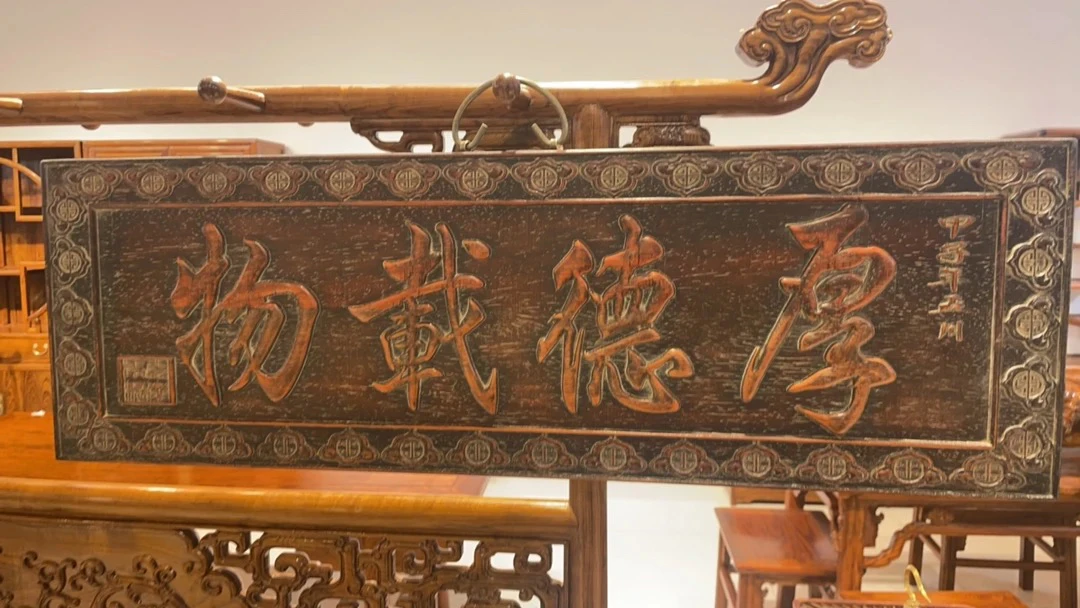 甲子年五月
厚德載物